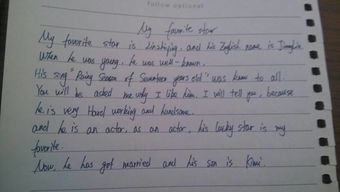 follow optional
My favorite star
My favorite star is Linzhiying. and his English name is Jimmylin.
When he was young, he was well-known.
His song "Rainy Season of Seventeen years old" was know to all.
You will be asked me why I like him, I will tell you, because
he is very Hard working and handsome.
and he is an actor, as an actor, his lucky star is my
favorite.
Now, he has got married and his son is Kimi.